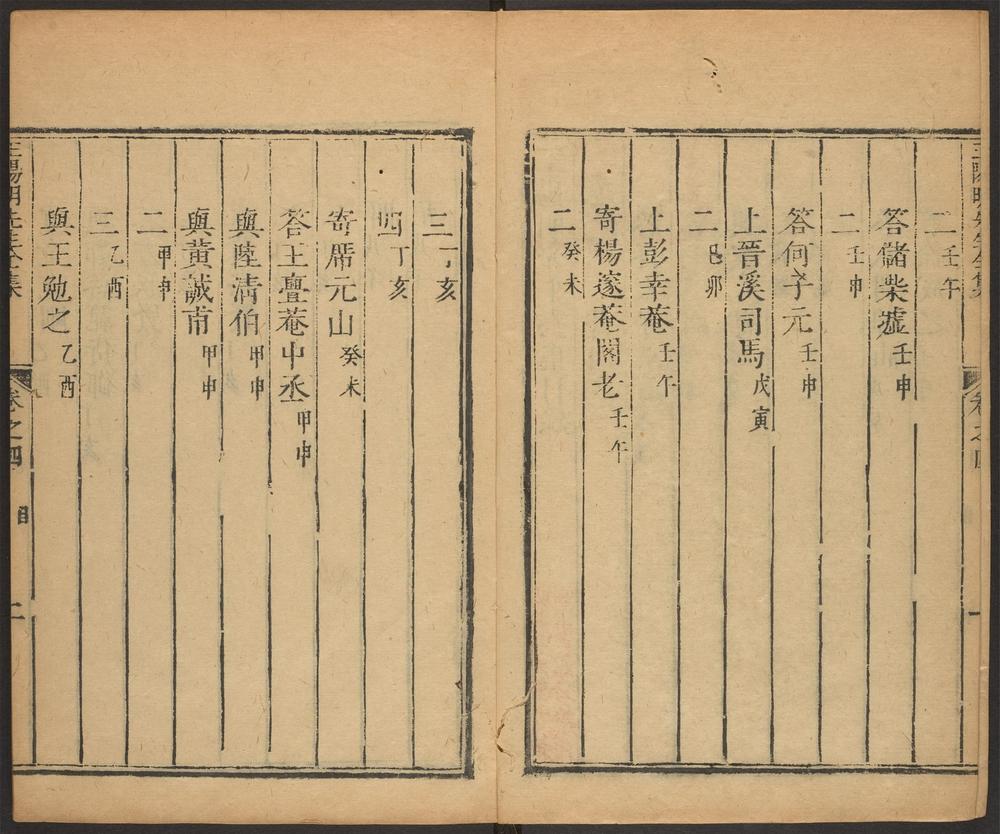 二 壬午
答儲柴墟 壬申
二 壬申
答何子元 壬申
上晉溪司馬 戊寅
二 己卯
上彭幸菴 壬午
寄楊邃菴閣老 壬午
二 癸未
三 丁亥
四 丁亥
寄席元山 癸未
答王亹菴中丞 甲申
與陸清伯 甲申
與黃誠甫 甲申
二 甲申
三 乙酉
與王勉之 乙酉
王陽明先生全集 卷之四 目 二